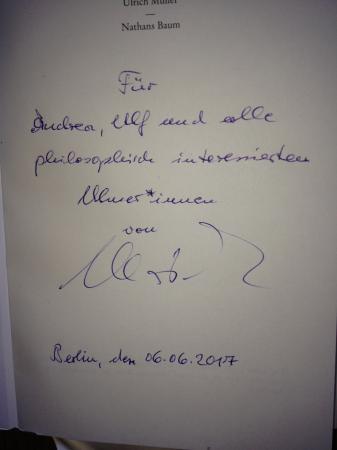 Ulrich Müller
—
Nathans Baum
Für
Andrea, Ulf und alle
philosophisch interessierten
Ulmer*innen
von
Berlin, den 06.06.2017